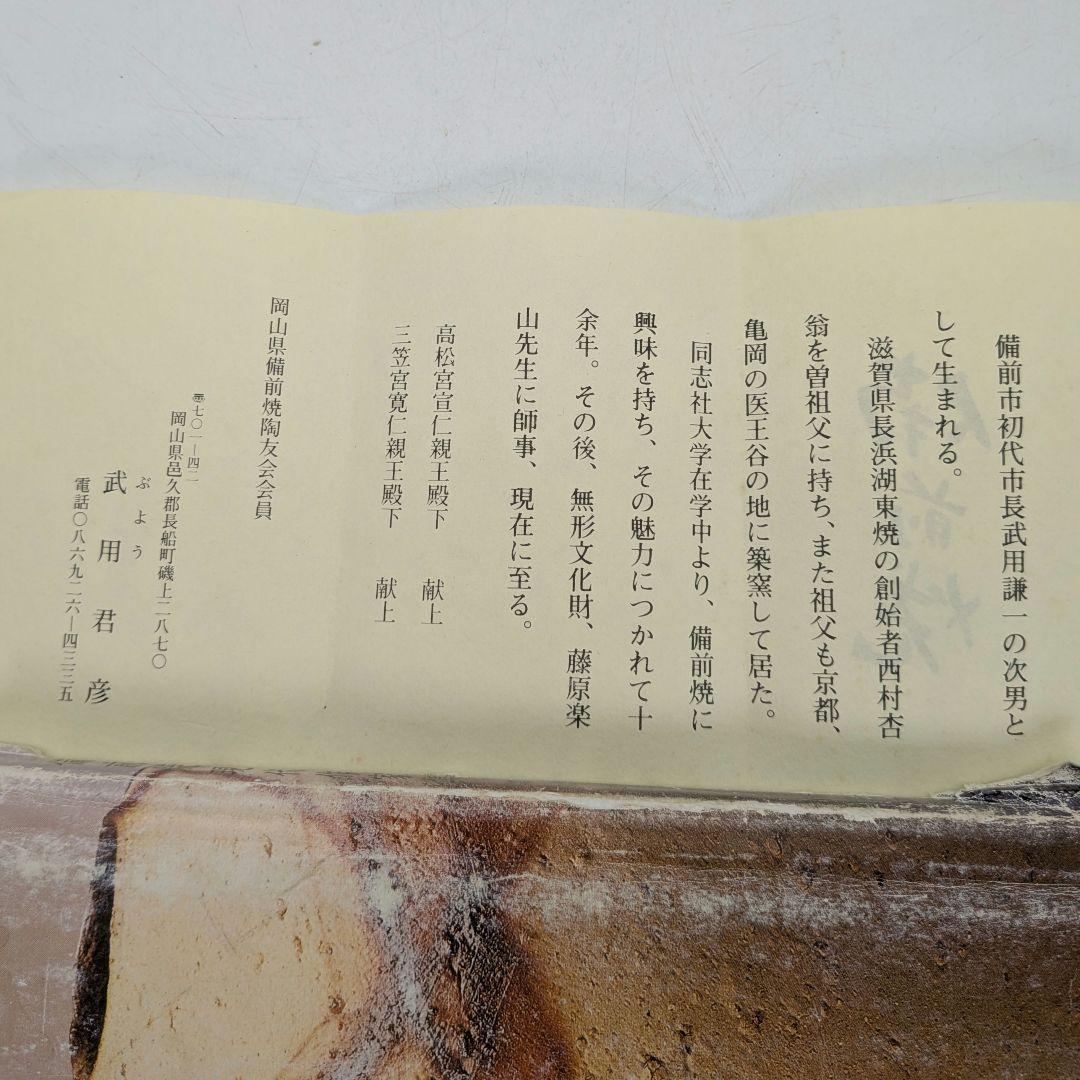 備前市初代市長武用謙一の次男と
して生まれる。
滋賀県長浜湖東焼の創始者西村杏
翁を曽祖父に持ち、また祖父も京都、
亀岡の医王谷の地に築窯して居た。
同志社大学在学中より、備前焼に
興味を持ち、その魅力につかれて十
余年。その後、無形文化財、藤原楽
山先生に師事、現在に至る。
高松宮宣仁親王殿下 献上
三笠宮寛仁親王殿下 献上
岡山県備前焼陶友会会員
〒七〇一―四二
岡山県邑久郡長船町磯上二八七〇
ぶよう
武用君彦
電話〇八六九二六―四三三五
備前焼